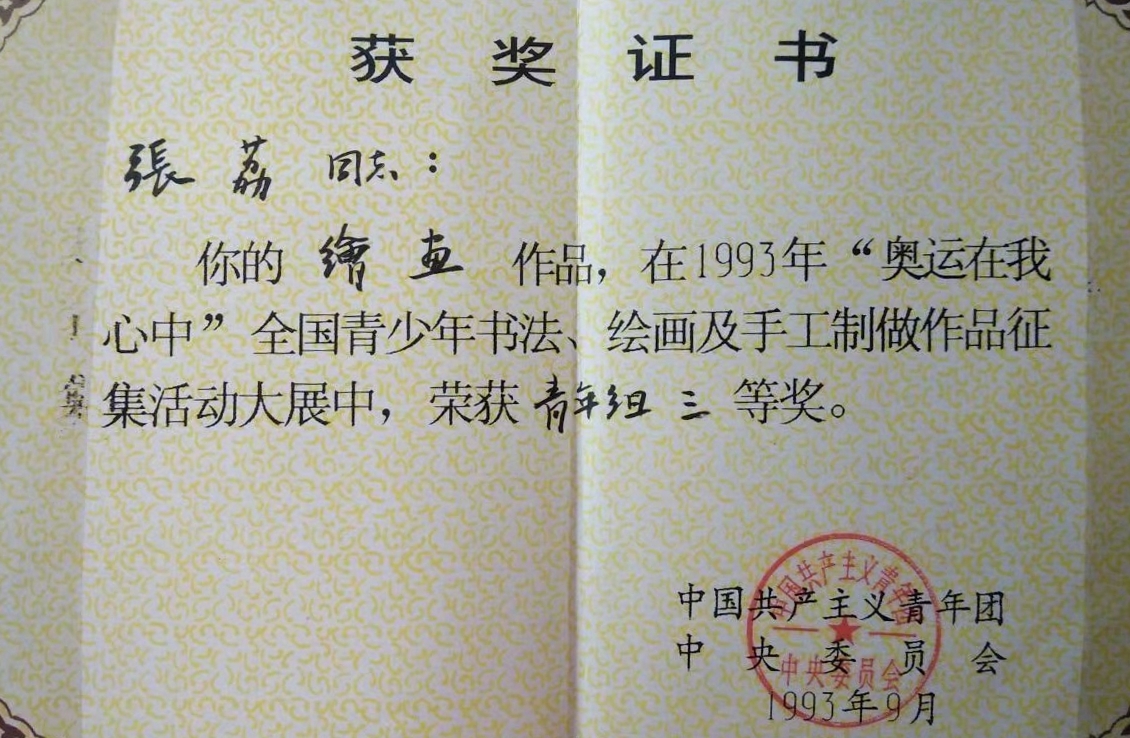 获奖证书
張荔同志：
你的繪画作品，在1993年“奥运在我
心中”全国青少年书法、绘画及手工制做作品征
集活动大展中，荣获青年组三等奖。
中国共产主义青年团
中央委员会
1993年9月
中国共产主义青年团
中央委员会